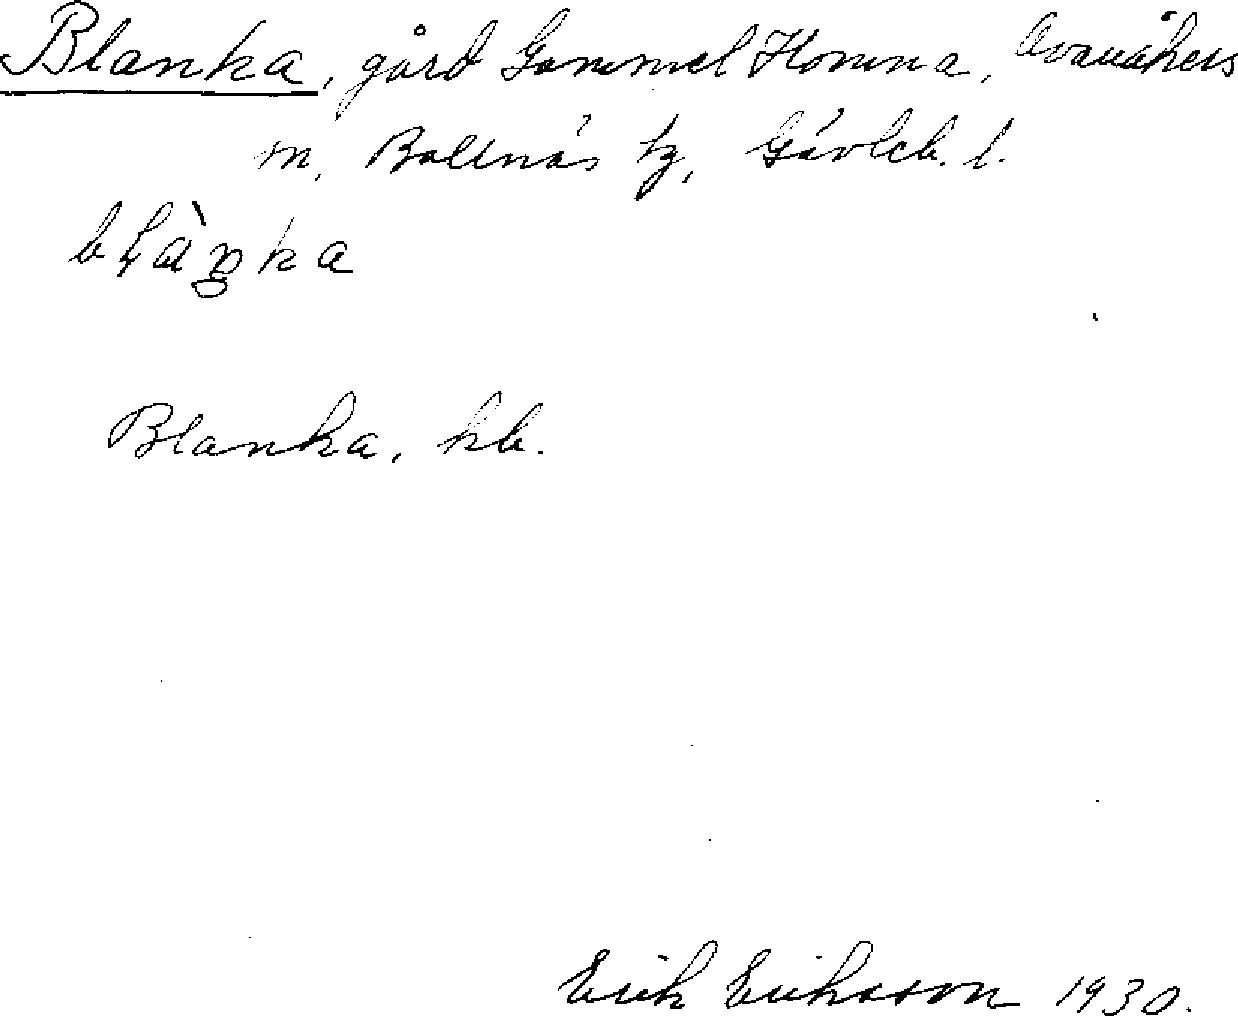 Blanka, gård Gammel Homna, Ovanåkers
m, Bollnäs tg, Gävleb. l.
Blanka, kb.
Erik Eriksson 1930.